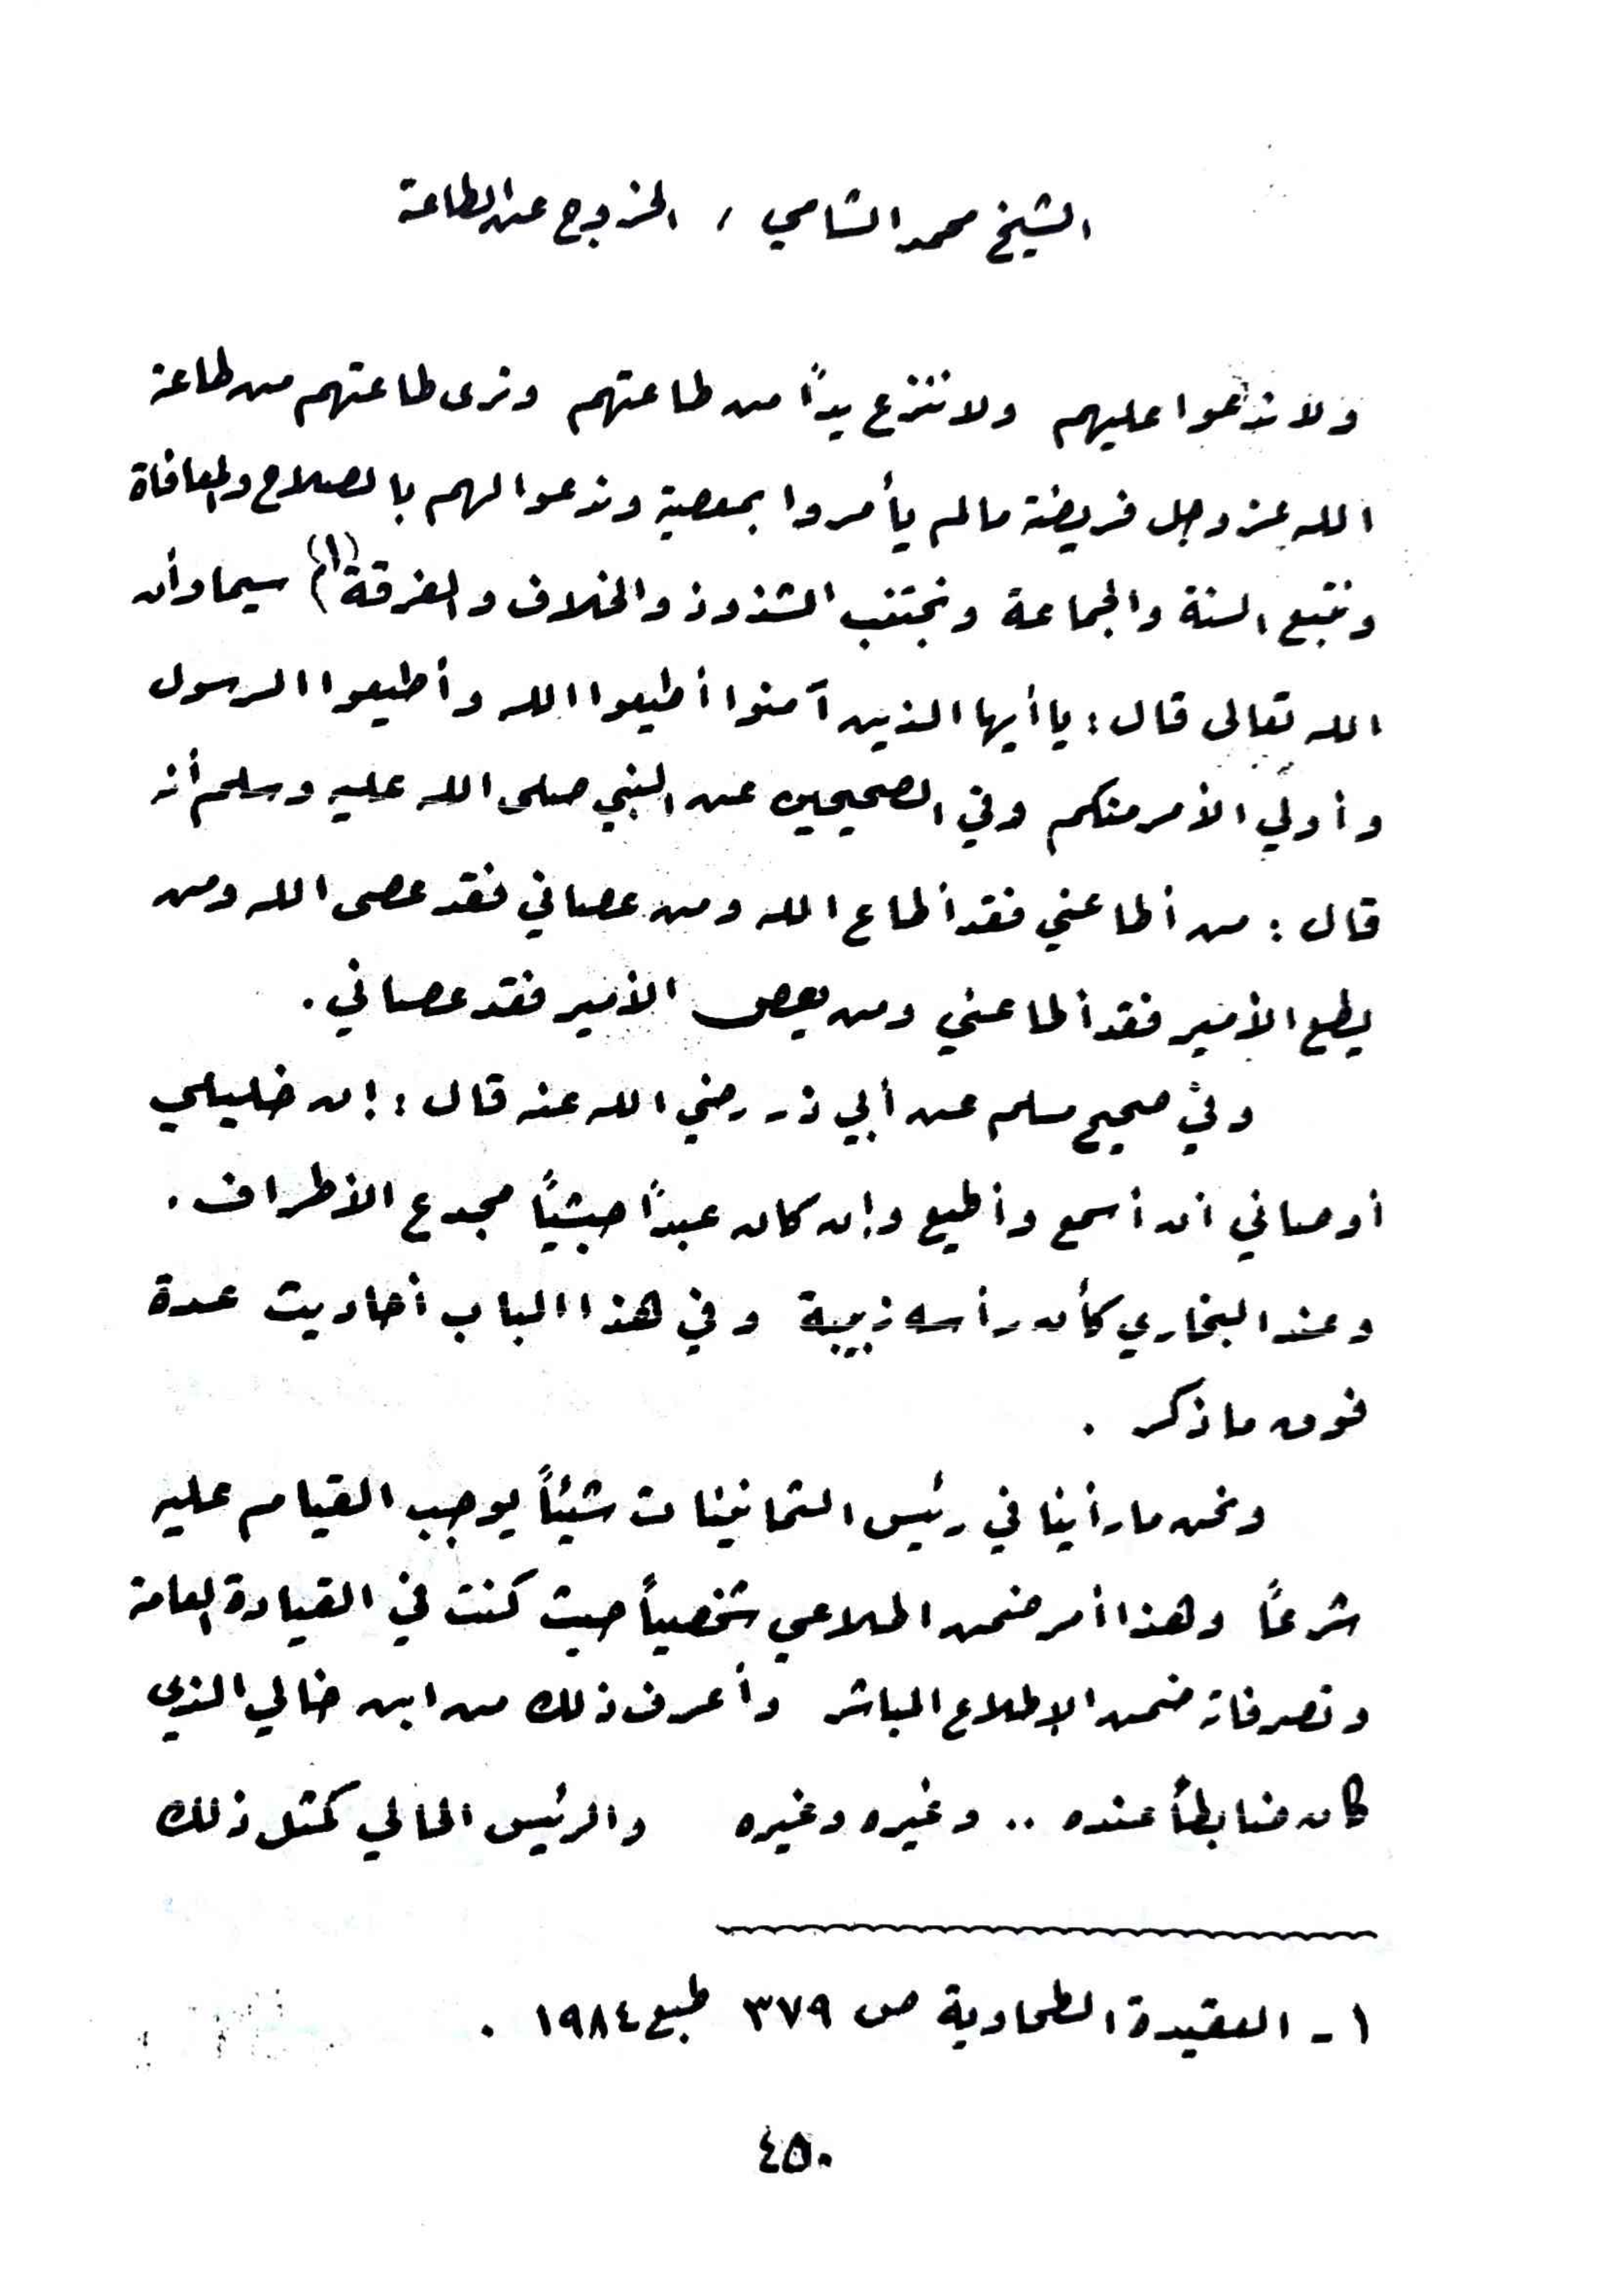 الشيخ محمد الشامي / الخروج عن الطاعة
ولا ندعوا عليهم ولا ننزع يداً من طاعتهم ونرى طاعتهم من طاعة
الله عز وجل فريضة مالم يأمروا بمعصية وندعوا لهم بالصلاح والمعافاة
ونتبع السنة والجماعة ونجتنب الشذوذ والخلاف والفرقة (١) سيما وأن
الله تعالى قال : يا أيها الذين آمنوا أطيعوا الله وأطيعوا الرسول
وأولي الأمر منكم وفي الصحيحين عن النبي صلى الله عليه وسلم أنه
قال : من أطاعني فقد أطاع الله ومن عصاني فقد عصى الله ومن
يطع الأمير فقد أطاعني ومن يعص الأمير فقد عصاني .
وفي صحيح مسلم عن أبي ذر رضي الله عنه قال : إن خليلي
أوصاني أن أسمع وأطيع وإن كان عبداً حبشياً مجدع الأطراف .
وعند البخاري كأن رأسه زبيبة وفي هذا الباب أحاديث عدة
فوق ما ذكر .
ونحن ما رأينا في رئيس الثمانينات شيئاً يوجب القيام عليه
شرعاً وهذا أمر ضمن اطلاعي شخصياً حيث كنت في القيادة العامة
وتصرفاته ضمن الإطلاع المباشر وأعرف ذلك من ابن خالي الذي
كان ضابطاً عنده .. وغيره وغيره والرئيس الحالي كمثل ذلك
١ - العقيدة الطحاوية ص ٣٧٩ طبع ١٩٨٤ .
٤٥٠